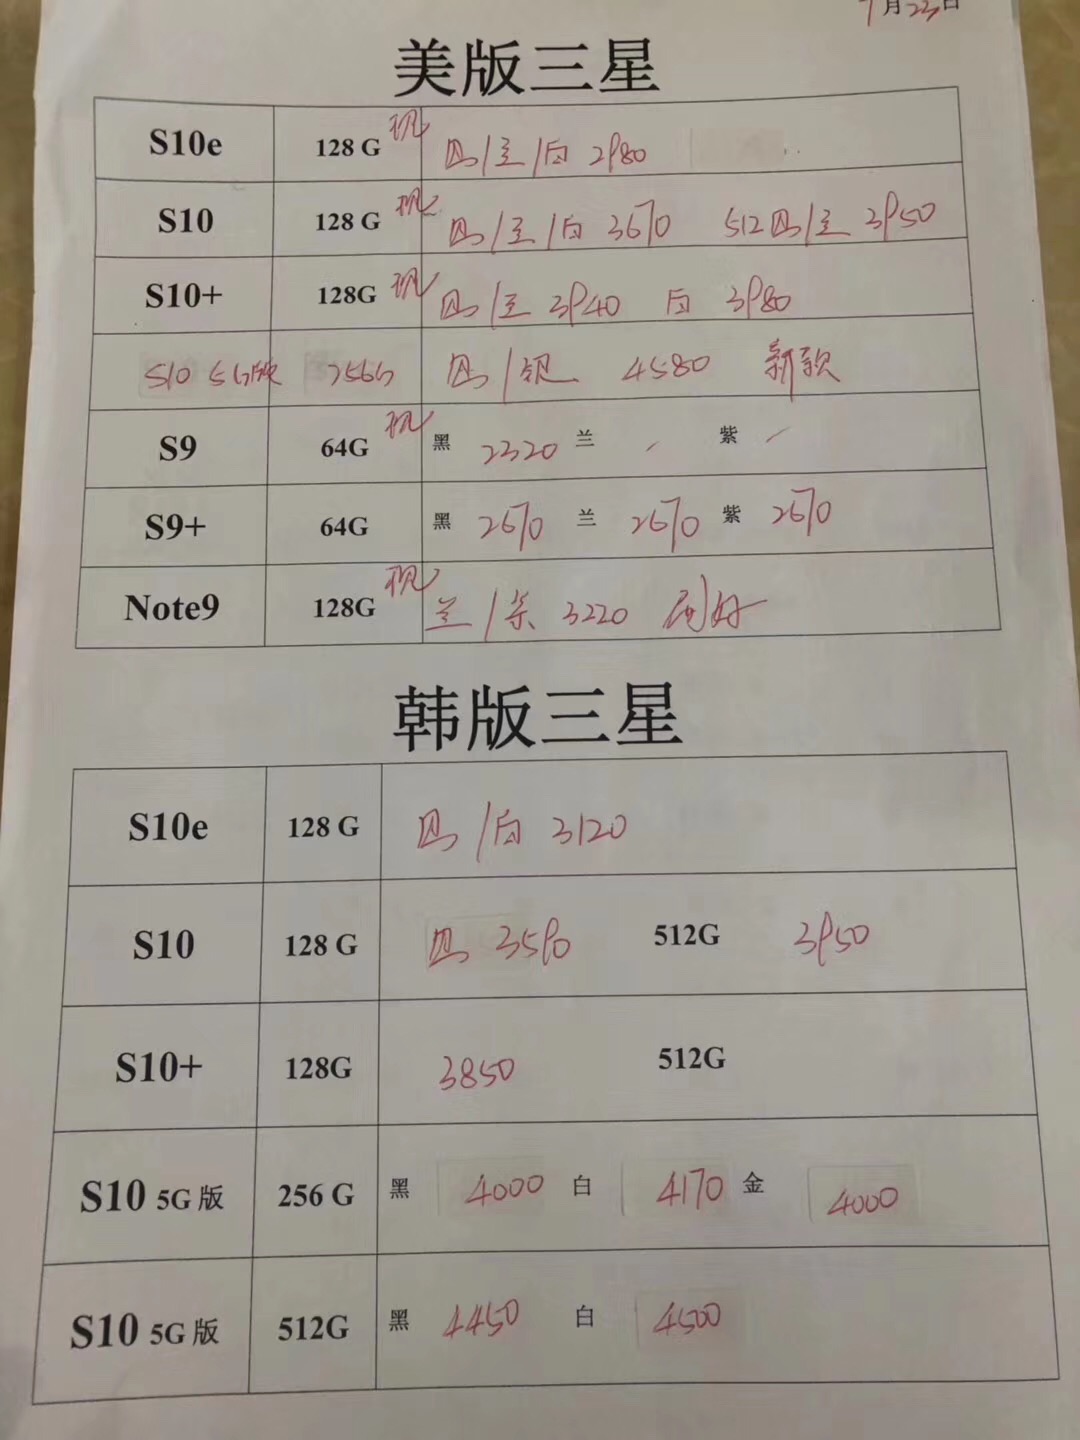 7月23日
美版三星
S10e 128 G 现 黑/兰/白 2980
S10 128 G 现 黑/兰/白 3670 512黑/兰 3950
S10+ 128G 现 黑/兰 3940 白 3980
S10 5G版 256G 黑/银 4580 新款
S9 64G 现 黑 2320 兰 / 紫 /
S9+ 64G 黑 2670 兰 2670 紫 2670
Note9 128G 现 兰/紫 3220
韩版三星
S10e 128 G 黑/白 3120
S10 128 G 黑 3590 512G 3950
S10+ 128G 3850 512G
S10 5G 版 256 G 黑 4000 白 4170 金 4000
S10 5G 版 512G 黑 4450 白 4500